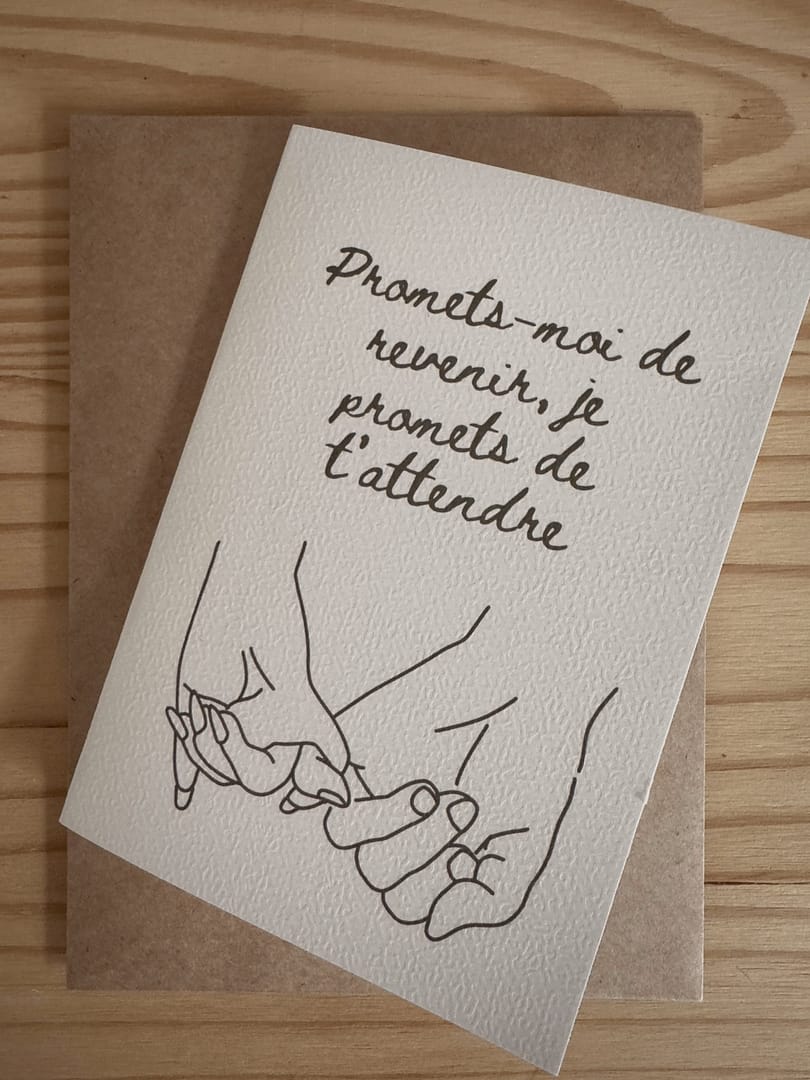 Promets-moi de
revenir, je
promets de
t'attendre